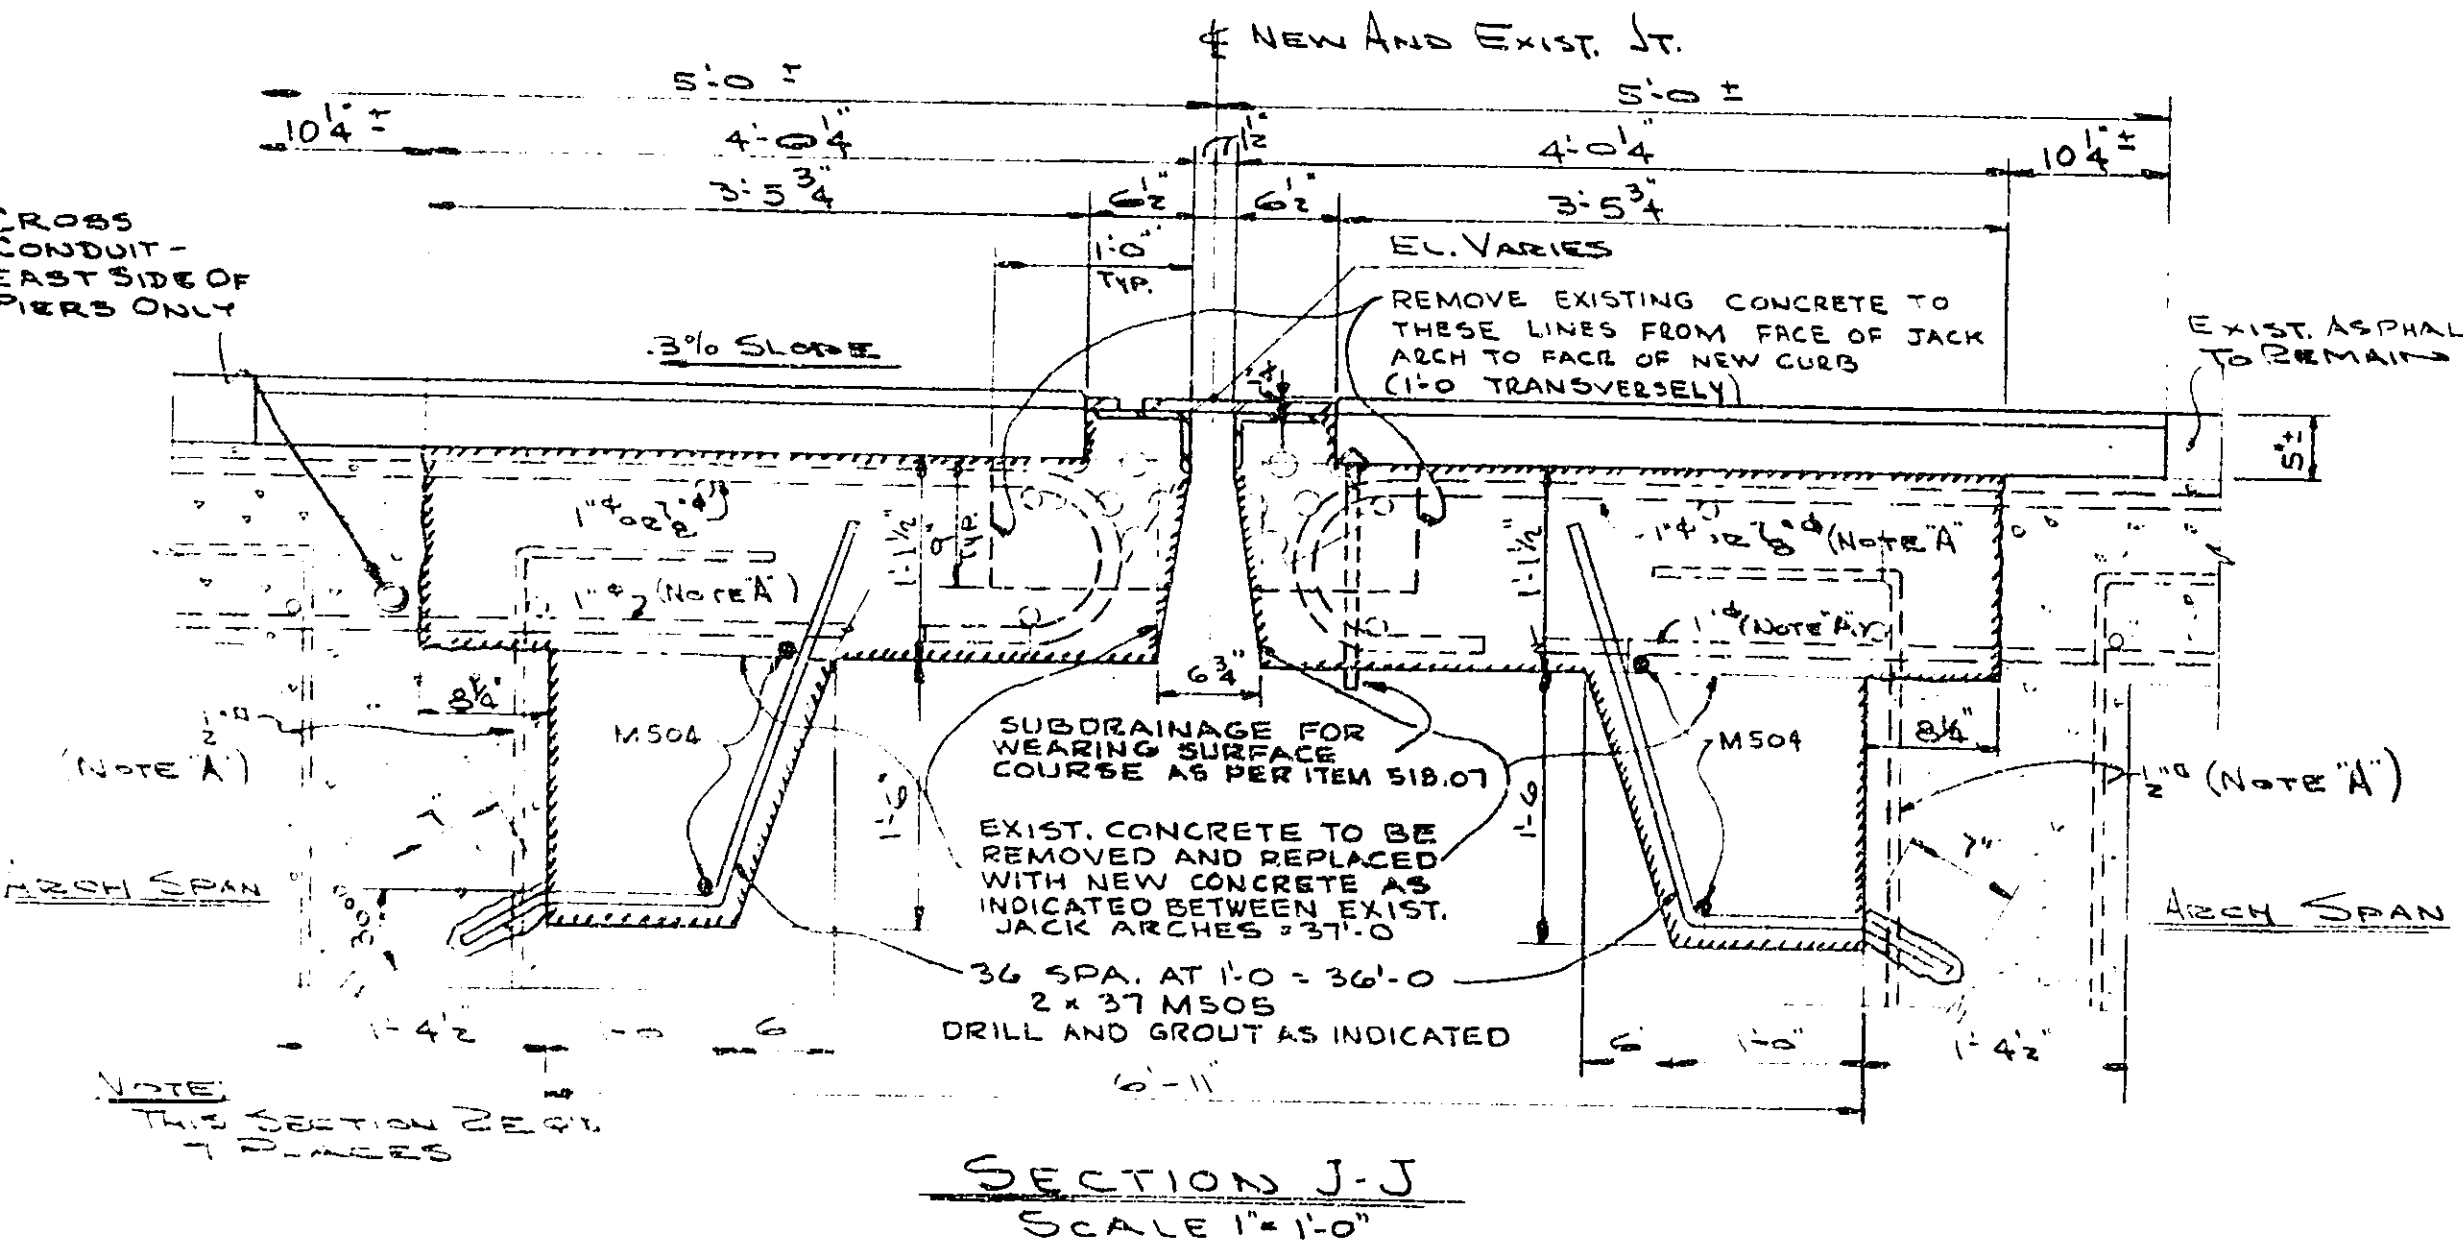 ℄ NEW AND EXIST. JT.
5'-0 ±
5'-0 ±
10 1/4" ±
4'-0 1/4"
1 1/2"
4'-0 1/4"
10 1/4" ±
3'-5 3/4"
6 1/2"
6 1/2"
3'-5 3/4"
CROSS
CONDUIT -
EAST SIDE OF
PIERS ONLY
1'-0"
TYP.
EL. VARIES
REMOVE EXISTING CONCRETE TO
THESE LINES FROM FACE OF JACK
ARCH TO FACE OF NEW CURB
(1'-0 TRANSVERSELY)
EXIST. ASPHAL
TO REMAIN
.3% SLOPE
5"±
1'-1 1/2"
9"
TYP.
1'-1 1/2"
(NOTE "A"
(NOTE "A")
(NOTE "A")
6 3/4"
8 1/4"
8 1/4"
1/2"
(NOTE "A")
M504
M504
SUBDRAINAGE FOR
WEARING SURFACE
COURSE AS PER ITEM 518.07
1/2" (NOTE "A")
1'-6"
1'-6
EXIST. CONCRETE TO BE
REMOVED AND REPLACED
WITH NEW CONCRETE AS
INDICATED BETWEEN EXIST.
JACK ARCHES = 37'-0
7"
7"
30°
ARCH SPAN
ARCH SPAN
36 SPA. AT 1'-0 = 36'-0
2 x 37 M505
DRILL AND GROUT AS INDICATED
1'-4 1/2
1'-0
6
6
1'-0"
1'-4 1/2"
6'-11"
NOTE:
THIS SECTION REQ'D
7 PLACES
SECTION J-J
SCALE 1" = 1'-0"